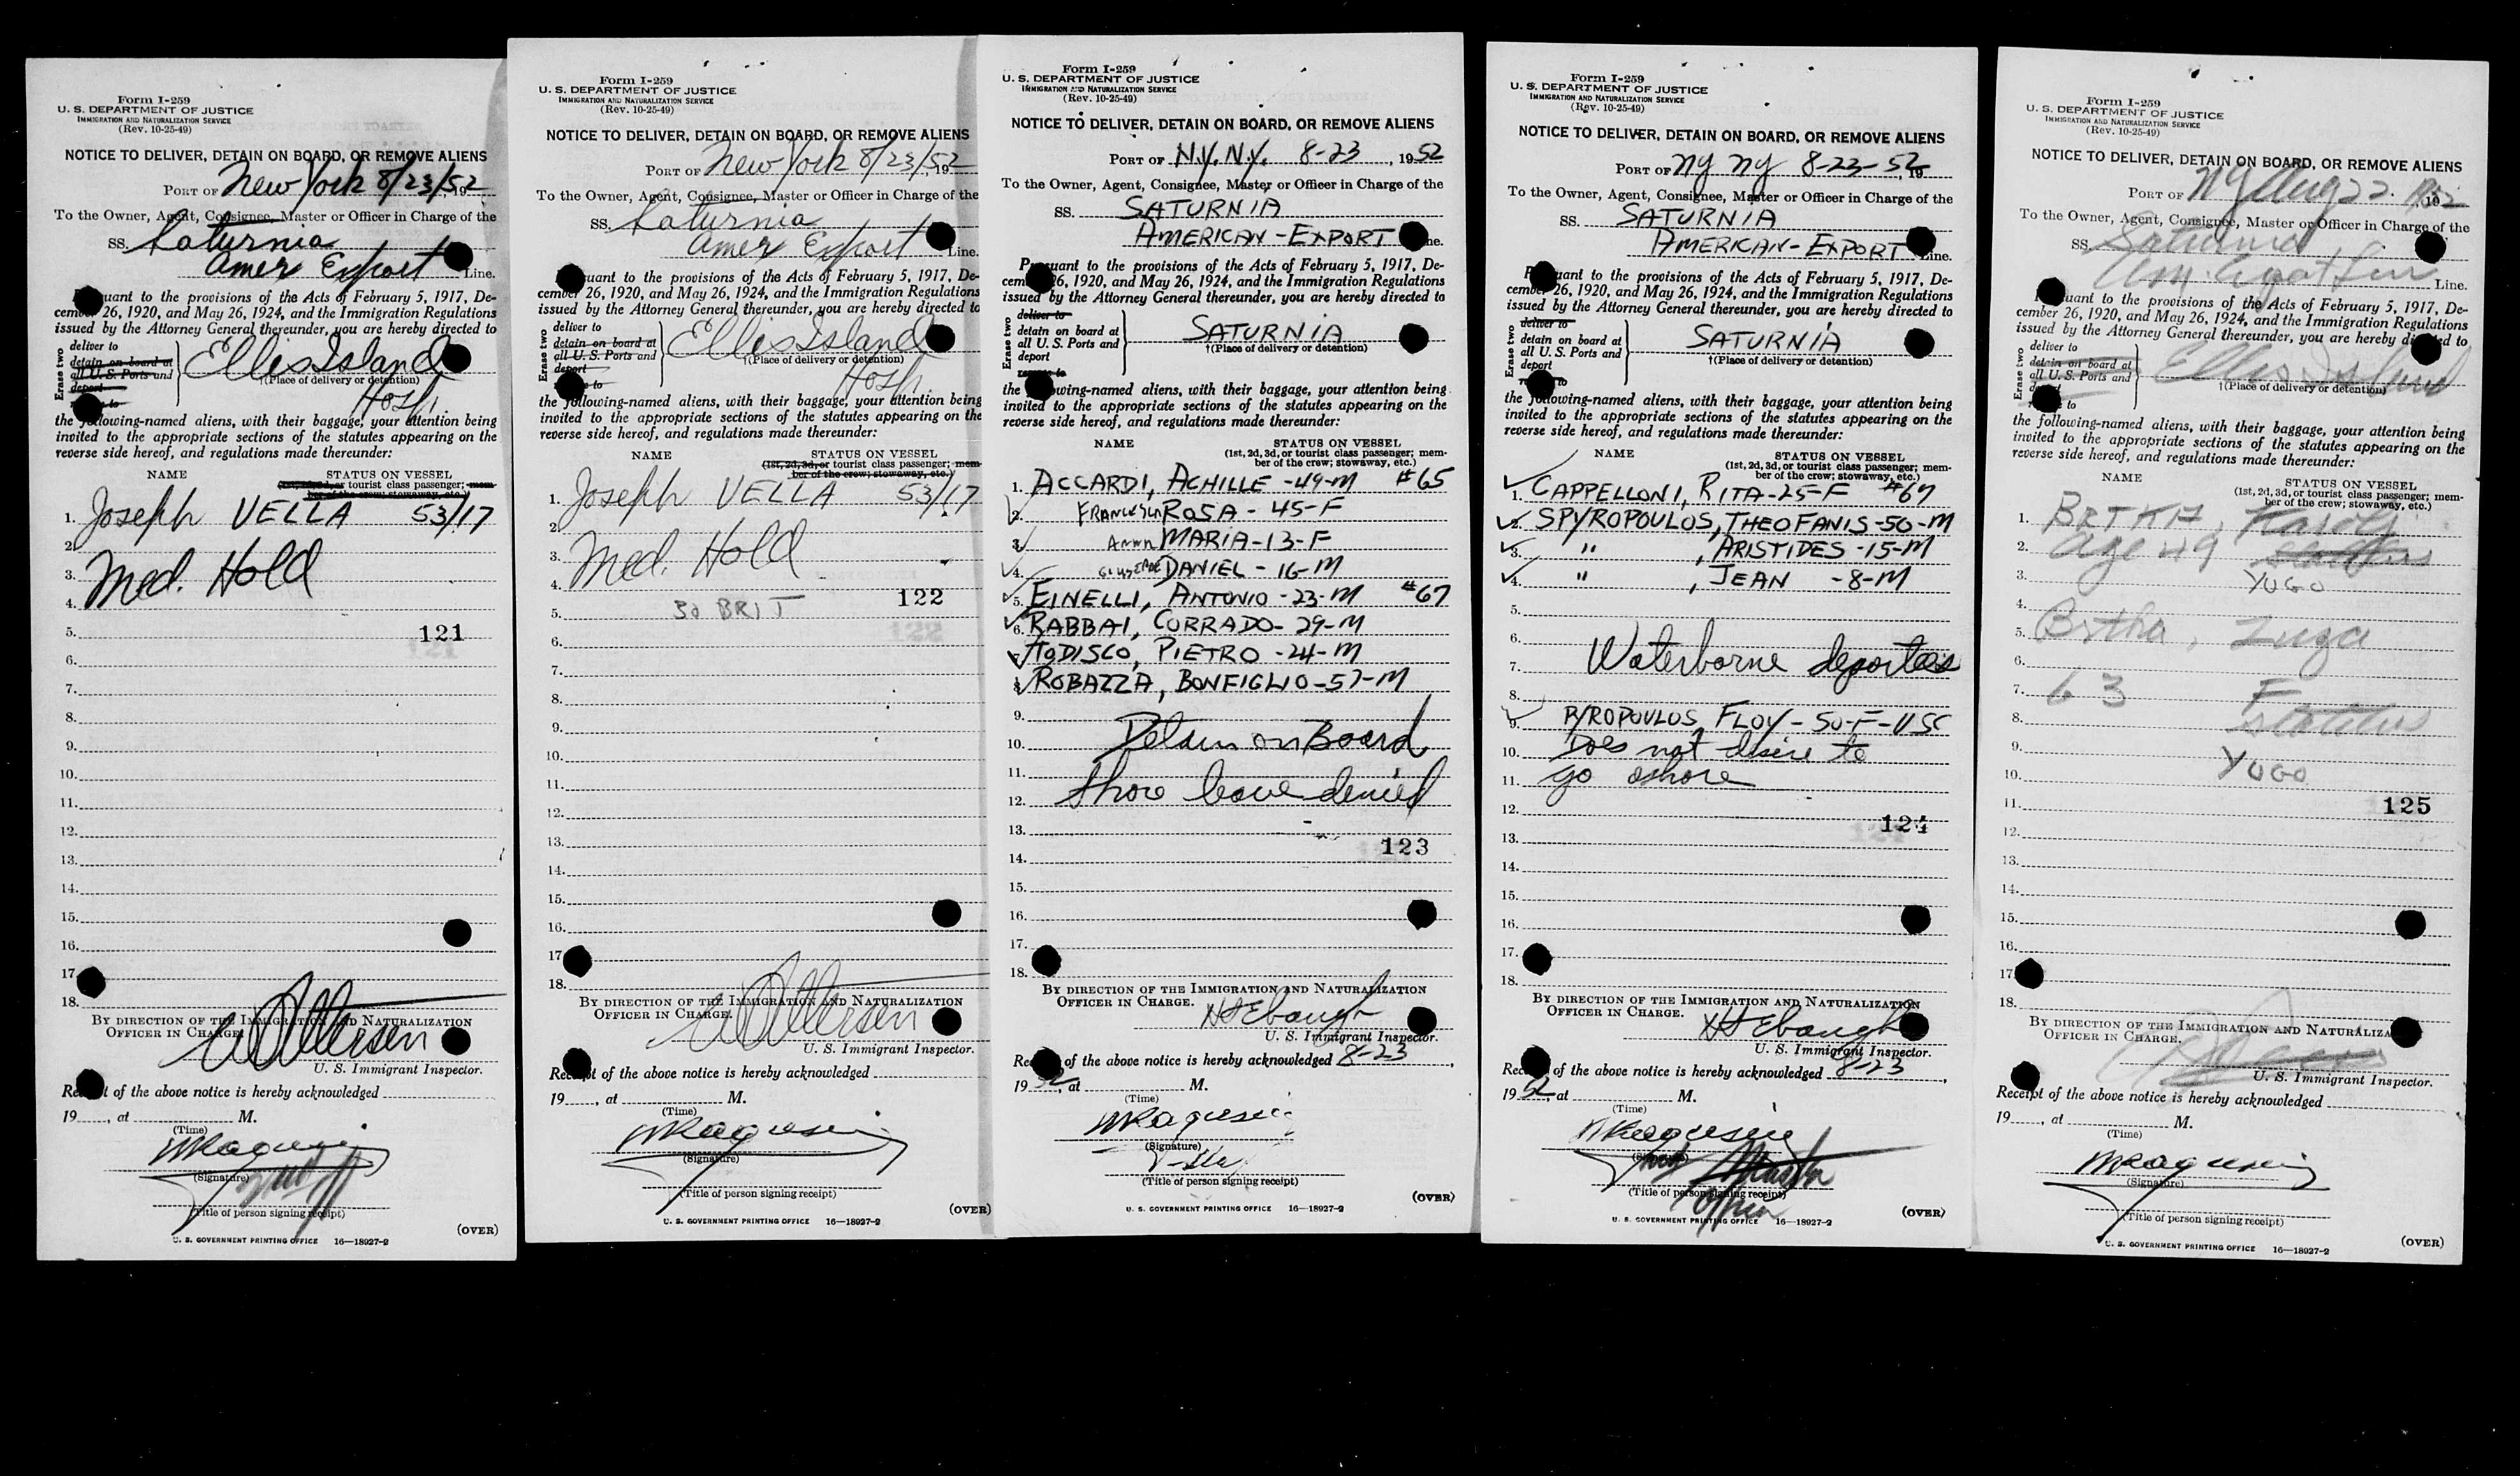 Form I-259
U. S. DEPARTMENT OF JUSTICE
IMMIGRATION AND NATURALIZATION SERVICE
(Rev. 10-25-49)
NOTICE TO DELIVER, DETAIN ON BOARD, OR REMOVE ALIENS
PORT OF New York 8/23/52, 19
To the Owner, Agent, Consignee, Master or Officer in Charge of the
SS. Saturnia
Amer Export Line.
Pursuant to the provisions of the Acts of February 5, 1917, De-
cember 26, 1920, and May 26, 1924, and the Immigration Regulations
issued by the Attorney General thereunder, you are hereby directed to
Erase two
deliver to
detain on board at
all U. S. Ports and
deport
to
Ellis Island
†(Place of delivery or detention)
Hosp.
the following-named aliens, with their baggage, your attention being
invited to the appropriate sections of the statutes appearing on the
reverse side hereof, and regulations made thereunder:
NAME STATUS ON VESSEL
(1st, 2d, 3d, or tourist class passenger; mem-
ber of the crew; stowaway, etc.)
1. Joseph VELLA 53/17
2.
3. Med. Hold
4.
5. 121
6.
7.
8.
9.
10.
11.
12.
13.
14.
15.
16.
17.
18.
BY DIRECTION OF THE IMMIGRATION AND NATURALIZATION
OFFICER IN CHARGE.
U. S. Immigrant Inspector.
Receipt of the above notice is hereby acknowledged
19, at M.
(Time)
(Signature)
(Title of person signing receipt)
(OVER)
U. S. GOVERNMENT PRINTING OFFICE 16—18927-2
Form I-259
U. S. DEPARTMENT OF JUSTICE
IMMIGRATION AND NATURALIZATION SERVICE
(Rev. 10-25-49)
NOTICE TO DELIVER, DETAIN ON BOARD, OR REMOVE ALIENS
PORT OF New York 8/23/52, 19
To the Owner, Agent, Consignee, Master or Officer in Charge of the
SS. Saturnia
Amer Export Line.
Pursuant to the provisions of the Acts of February 5, 1917, De-
cember 26, 1920, and May 26, 1924, and the Immigration Regulations
issued by the Attorney General thereunder, you are hereby directed to
Erase two
deliver to
detain on board at
all U. S. Ports and
deport
to
Ellis Island
†(Place of delivery or detention)
Hosp.
the following-named aliens, with their baggage, your attention being
invited to the appropriate sections of the statutes appearing on the
reverse side hereof, and regulations made thereunder:
NAME STATUS ON VESSEL
(1st, 2d, 3d, or tourist class passenger; mem-
ber of the crew; stowaway, etc.)
1. Joseph VELLA 53/17
2.
3. Med. Hold
4. 122
5. 30 BRIT
6.
7.
8.
9.
10.
11.
12.
13.
14.
15.
16.
17.
18.
BY DIRECTION OF THE IMMIGRATION AND NATURALIZATION
OFFICER IN CHARGE.
U. S. Immigrant Inspector.
Receipt of the above notice is hereby acknowledged
19, at M.
(Time)
(Signature)
(Title of person signing receipt)
(OVER)
U. S. GOVERNMENT PRINTING OFFICE 16—18927-2
Form I-259
U. S. DEPARTMENT OF JUSTICE
IMMIGRATION AND NATURALIZATION SERVICE
(Rev. 10-25-49)
NOTICE TO DELIVER, DETAIN ON BOARD, OR REMOVE ALIENS
PORT OF N.Y. N.Y. 8-23, 1952
To the Owner, Agent, Consignee, Master or Officer in Charge of the
SS. SATURNIA
AMERICAN-EXPORT Line.
Pursuant to the provisions of the Acts of February 5, 1917, De-
cember 26, 1920, and May 26, 1924, and the Immigration Regulations
issued by the Attorney General thereunder, you are hereby directed to
Erase two
deliver to
detain on board at
all U. S. Ports and
deport
remove to
SATURNIA
†(Place of delivery or detention)
the following-named aliens, with their baggage, your attention being
invited to the appropriate sections of the statutes appearing on the
reverse side hereof, and regulations made thereunder:
NAME STATUS ON VESSEL
(1st, 2d, 3d, or tourist class passenger; mem-
ber of the crew; stowaway, etc.)
1. ACCARDI, ACHILLE -49-M #65
2. FRANCESCA ROSA - 45-F
3. ANNA MARIA-13-F
4. GIUSEPPE DANIEL - 16-M
5. EINELLI, ANTONIO -23-M #67
6. RABBAI, CORRADO- 29-M
7. AODISCO, PIETRO -24-M
8. ROBAZZA, BONFIGLIO-57-M
9.
10. Detain on Board
11.
12. Shore leave denied
13.
14. 123
15.
16.
17.
18.
BY DIRECTION OF THE IMMIGRATION AND NATURALIZATION
OFFICER IN CHARGE.
H S Ebaugh
U. S. Immigrant Inspector.
Receipt of the above notice is hereby acknowledged 8-23,
1952, at M.
(Time)
(Signature)
(Title of person signing receipt)
(OVER)
U. S. GOVERNMENT PRINTING OFFICE 16—18927-2
Form I-259
U. S. DEPARTMENT OF JUSTICE
IMMIGRATION AND NATURALIZATION SERVICE
(Rev. 10-25-49)
NOTICE TO DELIVER, DETAIN ON BOARD, OR REMOVE ALIENS
PORT OF NY NY 8-23-52, 19
To the Owner, Agent, Consignee, Master or Officer in Charge of the
SS. SATURNIA
AMERICAN-EXPORT Line.
Pursuant to the provisions of the Acts of February 5, 1917, De-
cember 26, 1920, and May 26, 1924, and the Immigration Regulations
issued by the Attorney General thereunder, you are hereby directed to
Erase two
deliver to
detain on board at
all U. S. Ports and
deport
to
SATURNIA
†(Place of delivery or detention)
the following-named aliens, with their baggage, your attention being
invited to the appropriate sections of the statutes appearing on the
reverse side hereof, and regulations made thereunder:
NAME STATUS ON VESSEL
(1st, 2d, 3d, or tourist class passenger; mem-
ber of the crew; stowaway, etc.)
1. CAPPELLONI, RITA-25-F #67
2. SPYROPOULOS, THEOFANIS-50-M
3. " , ARISTIDES -15-M
4. " , JEAN -8-M
5.
6.
7. Waterborne deportees
8.
9. PYROPOULOS, FLOY - 50-F-USC
10. Does not desire to
11. go ashore
12.
124
13.
14.
15.
16.
17.
18.
BY DIRECTION OF THE IMMIGRATION AND NATURALIZATION
OFFICER IN CHARGE.
H S Ebaugh
U. S. Immigrant Inspector.
Receipt of the above notice is hereby acknowledged 8-23,
1952, at M.
(Time)
(Signature)
(Title of person signing receipt)
Officer
(OVER)
U. S. GOVERNMENT PRINTING OFFICE 16—18927-2
Form I-259
U. S. DEPARTMENT OF JUSTICE
IMMIGRATION AND NATURALIZATION SERVICE
(Rev. 10-25-49)
NOTICE TO DELIVER, DETAIN ON BOARD, OR REMOVE ALIENS
PORT OF NY Aug 22 1952
To the Owner, Agent, Consignee, Master or Officer in Charge of the
SS. Saturnia
Am. Export Line.
Pursuant to the provisions of the Acts of February 5, 1917, De-
cember 26, 1920, and May 26, 1924, and the Immigration Regulations
issued by the Attorney General thereunder, you are hereby directed to
Erase two
deliver to
detain on board at
all U. S. Ports and
to
Ellis Island
†(Place of delivery or detention)
the following-named aliens, with their baggage, your attention being
invited to the appropriate sections of the statutes appearing on the
reverse side hereof, and regulations made thereunder:
NAME STATUS ON VESSEL
(1st, 2d, 3d, or tourist class passenger; mem-
ber of the crew; stowaway, etc.)
1. BRTKA, Karolj
2. age 49
3. YUGO
4.
5. Brtka, Zuza
6.
7. 63 F
8. stateless
9.
10. YUGO
11. 125
12.
13.
14.
15.
16.
17.
18.
BY DIRECTION OF THE IMMIGRATION AND NATURALIZATION
OFFICER IN CHARGE.
U. S. Immigrant Inspector.
Receipt of the above notice is hereby acknowledged
19, at M.
(Time)
(Signature)
(Title of person signing receipt)
(OVER)
U. S. GOVERNMENT PRINTING OFFICE 16—18927-2